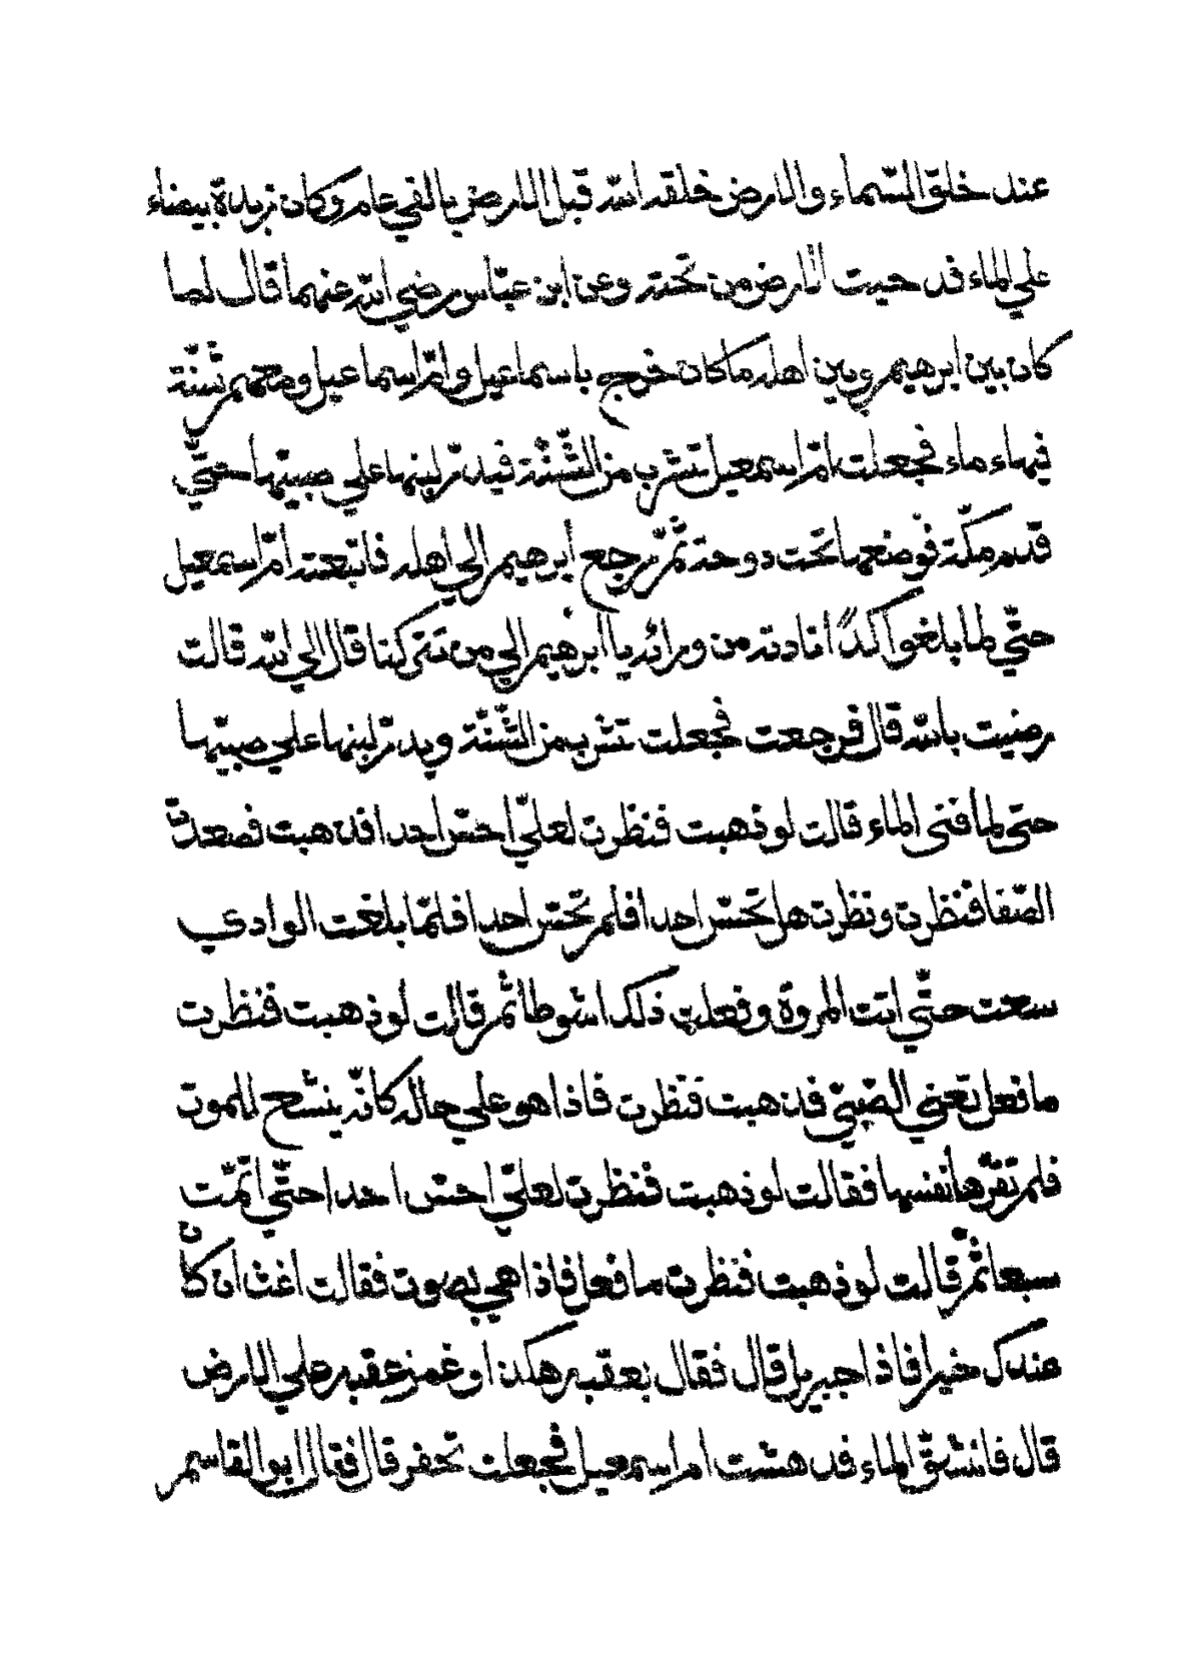 عند خلق السّماء والارض خلقه اللّه قبل الارض بالفي عام وكان زبدة بيضاء
علي الماء فدحيت الارض من تحته وعن ابن عبّاس رضي اللّه عنهما قال لما
كان بين ابرهيم وبين اهله ماكان خرج باسماعيل وامّ اسماعيل ومعهم شنّة
فيهاء ماء فجعلت امّ اسمعيل تشرب من الشّنّة فيدرّ لبنها علي صبيّها حتّي
قدم مكّة فوضعها تحت دوحة ثمّ رجع ابرهيم الي اهله فاتبعته امّ اسمعيل
حتّي لما بلغوا كدًا نادته من ورائه يا ابرهيم الي من تتركنا قال الي اللّه قالت
رضيت باللّه قال فرجعت فجعلت تشرب من الشّنّة ويدرّ لبنها علي صبيّها
حتى لما فنى الماء قالت لو ذهبت فنظرت لعلّي احسّ احدا فذهبت فصعدت
الصّفا فنظرت ونظرت هل تحسّ احدا فلم تحسّ احدا فلمّا بلغت الوادي
سعت حتّي اتت المروة وفعلت ذلك اشواطا ثم قالت لو ذهبت فنظرت
ما فعل تعني الصّبيّ فذهبت فنظرت فاذا هو علي حاله كانّه ينشح للموت
فلم تقرّها نفسها فقالت لو ذهبت فنظرت لعلّي احسّ احدا حتّي اتمّت
سبعا ثمّ قالت لو ذهبت فنظرت ما فعل فاذا هي بصوت فقالت اغث ان كان
عندك خير فاذا جبريل قال فقال بعقبه هكذا وغمز عقبه علي الارض
قال فانشقّ الماء فدهشت ام اسمعيل فجعلت تحفر قال فقال ابو القاسم